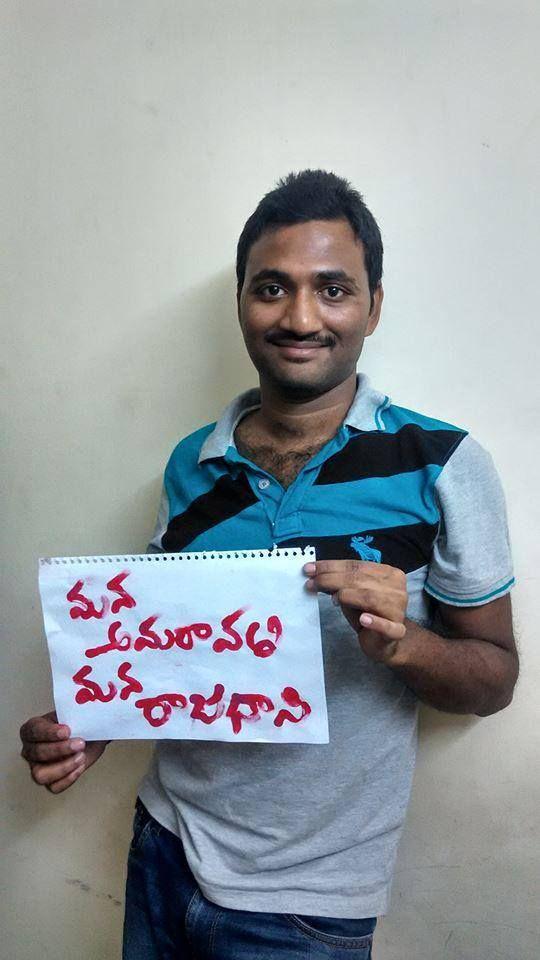 మన
అమరావతి
మన
రాజధాని